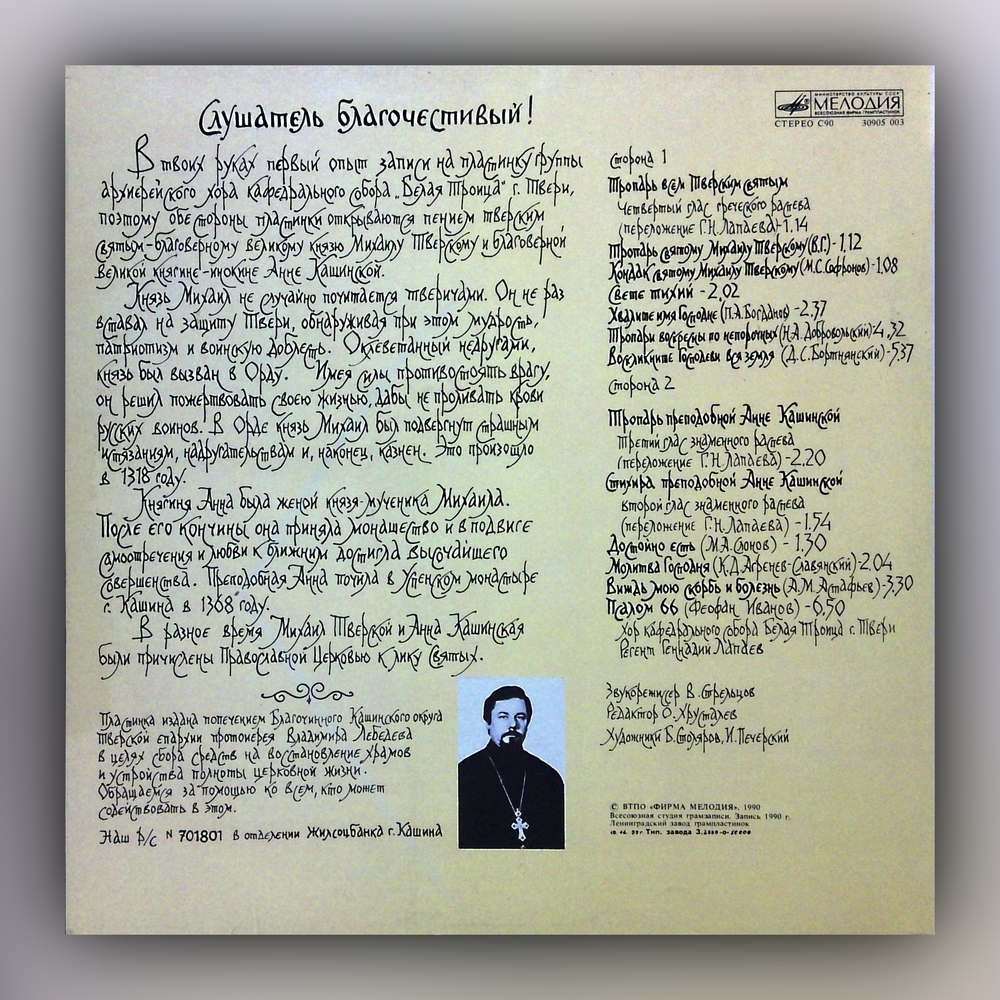 Слушатель благочестивый!
В твоих руках первый опыт записи на пластинку группы
архиерейского хора кафедрального собора „Белая Троица" г. Твери,
поэтому обе стороны пластинки открываются пением тверским
святым-благоверному великому князю Михаилу Тверскому и благоверной
великой княгине-инокине Анне Кашинской.
Князь Михаил не случайно почитается тверичами. Он не раз
вставал на защиту Твери, обнаруживая при этом мудрость,
патриотизм и воинскую доблесть. Оклеветанный недругами,
князь был вызван в Орду. Имея силы противостоять врагу,
он решил пожертвовать своею жизнью, дабы не проливать крови
русских воинов. В Орде князь Михаил был подвергнут страшным
истязаниям, надругательствам и, наконец, казнен. Это произошло
в 1318 году.
Княгиня Анна была женой князя-мученика Михаила.
После его кончины она приняла монашество и в подвиге
самоотречения и любви к ближним достигла высочайшего
совершенства. Преподобная Анна почила в Успенском монастыре
г. Кашина в 1368 году.
В разное время Михаил Тверской и Анна Кашинская
были причислены Православной Церковью к лику святых.
Пластинка издана попечением Благочинного Кашинского округа
Тверской епархии протоиерея Владимира Лебедева
в целях сбора средств на восстановление храмов
и устройства полноты церковной жизни.
Обращаемся за помощью ко всем, кто может
содействовать в этом.
Наш р/с N 701801 в отделении Жилсоцбанка г. Кашина
МИНИСТЕРСТВО КУЛЬТУРЫ СССР
МЕЛОДИЯ
ВСЕСОЮЗНАЯ ФИРМА ГРАМПЛАСТИНОК
СТЕРЕО С90 30905 003
Сторона 1
Тропарь всем Тверским святым
Четвертый глас греческого распева
(переложение Г.Н. Лапаева)-1.14
Тропарь святому Михаилу Тверскому (В.Г.)-1,12
Кондак святому Михаилу Тверскому (М.С. Софронов)-1,08
Свете тихий -2,02
Хвалите имя Господне (П.А. Богданов) -2,37
Тропари воскресны по непорочных (Н.А. Добровольский)-4,32
Воскликните Господеви вся земля (Д.С. Бортнянский)-5,37
Сторона 2
Тропарь преподобной Анне Кашинской
Третий глас знаменного распева
(переложение Г.Н. Лапаева) -2.20
Стихира преподобной Анне Кашинской
второй глас знаменного распева
(переложение Г.Н. Лапаева) -1,54
Достойно есть (М.А. Сюнов) - 1,30
Молитва Господня (К.Д. Агренев-Славянский)-2,04
Виждь мою скорбь и болезнь (А.М. Астафьев)-3,30
Псалом 66 (Феофан Иванов) -6,50
Хор кафедрального собора Белая Троица г. Твери
Регент Геннадий Лапаев
Звукорежиссер В. Стрельцов
Редактор О. Хрусталев
Художники Б. Столяров, И. Печерский
© ВТПО «ФИРМА МЕЛОДИЯ», 1990
Всесоюзная студия грамзаписи. Запись 1990 г.
Ленинградский завод грампластинок
Тип. завода